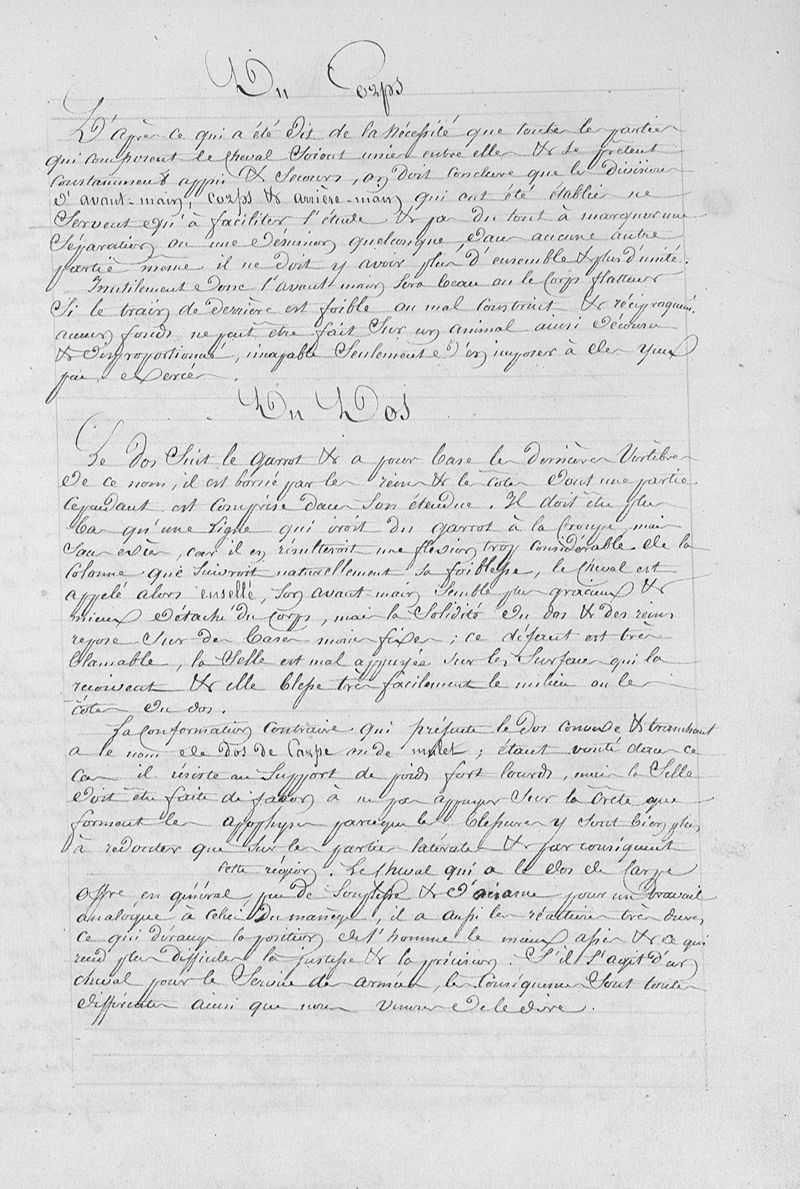 Du Corps
D'après ce qui a été dit de la nécessité que toutes les parties
qui composent le cheval soient unies entre elles & se prêtent
constamment appui & secours, on doit conclure que les divisions
d'avant-main, corps & arrière-main qui ont été établies ne
servent qu'à faciliter l'étude & pas du tout à marquer une
séparation ou une désunion quelconque, dans aucune autre
partie même il ne doit y avoir plus d'ensemble & plus d'unité.
Inutilement donc l'avant-main sera beau ou le corps flatteur
si le train de derrière est foible ou mal construit & réciproquemt.
aucun fonds ne peut être fait sur un animal ainsi décousu
& disproportionné, incapable seulement d'en imposer à des yeux
peu exercés.
Du Dos
Le dos suit le garrot & a pour base les dernières vertèbres
de ce nom, il est borné par les reins & les côtes dont une partie
cependant est comprise dans son étendue. Il doit être plus
bas qu'une ligne qui iroit du garrot à la croupe mais
sans excès, car il en résulteroit une flexion trop considérable de la
colonne que suivroit naturellement sa foiblesse, le cheval est
appelé alors ensellé, son avant-main semble plus gracieux &
mieux détaché du corps, mais la solidité du dos & des reins
repose sur des bases moins fixes ; ce défaut est très
blamable, la selle est mal appuyée sur les surfaces qui la
reçoivent & elle blesse très facilement le milieu ou les
côtés du dos.
La conformation contraire qui présente le dos convexe & tranchant
a le nom de dos de Carpe ou de mulet ; étant vouté dans ce
cas il résiste au support de poids fort lourds, mais la selle
doit être faite de façon à ne pas appuyer sur la crête que
forment les apophyses parceque les blessures y sont bien plus
à redouter que sur les parties latérales & par conséquent
cette région. Le cheval qui a le dos de Carpe
offre en général peu de souplesse & d'aisance pour un travail
analogue à celui du manège, il a aussi les réactions très dures
ce qui dérange la position de l'homme le mieux assis & ce qui
rend plus difficiles la justesse & la précision. S'il s'agit d'un
cheval pour le service des armées, les conséquences sont toutes
différentes ainsi que nous venons de le dire.